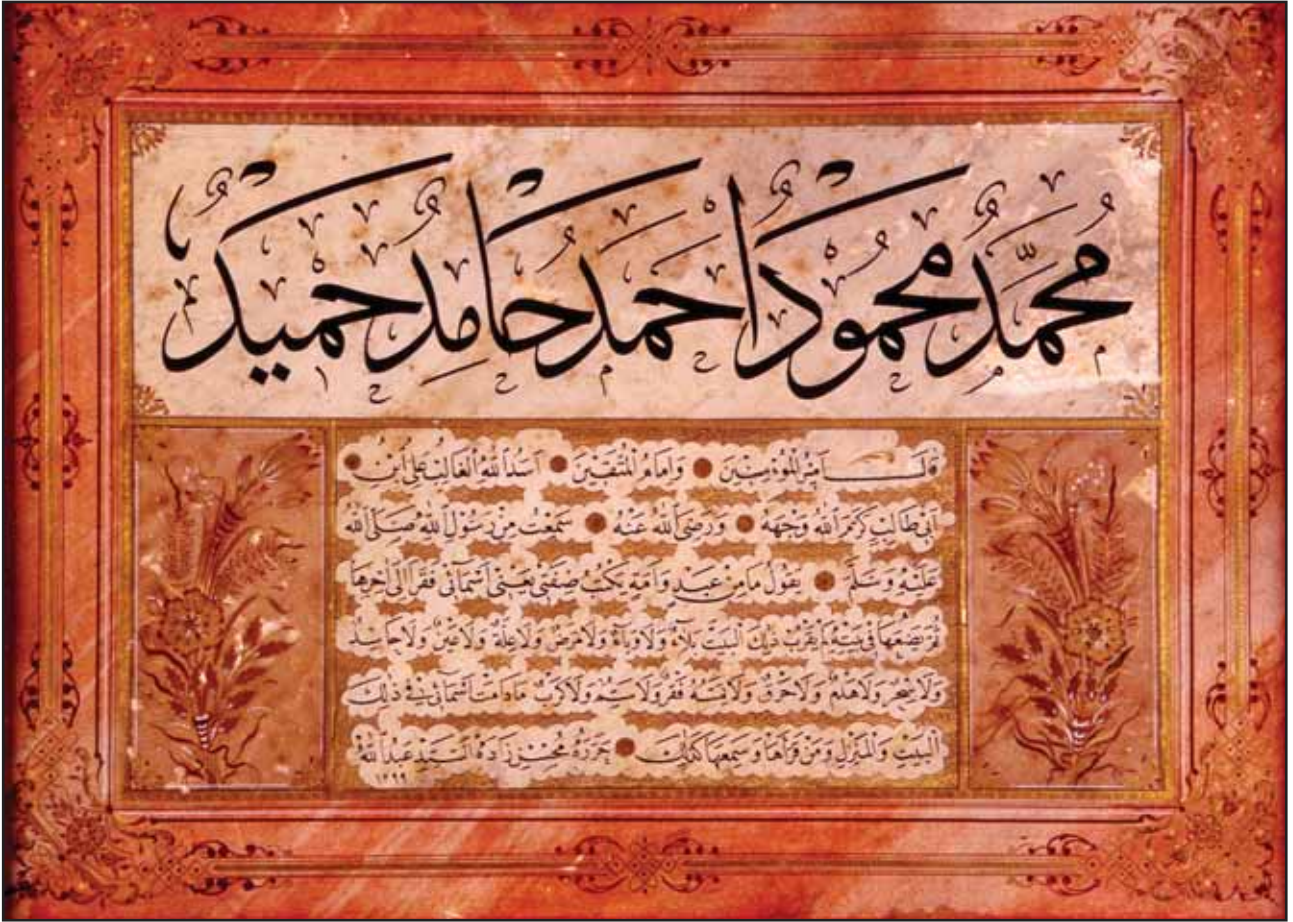 مُحَمَّدٌ مَحْمُودٌ اَحْمَدُ حَامِدٌ حَمِيدٌ
قَالَ اَمِيرُ الْمُؤْمِنِينَ وَاِمَامُ الْمُتَّقِينَ اَسَدُ اللهِ الْغَالِبُ عَلِىُّ ابْنُ
اَبِى طَالِبٍ كَرَّمَ اللهُ وَجْهَهُ وَرَضِىَ اللهُ عَنْهُ سَمِعْتُ مِنْ رَسُولِ اللهِ صَلَّى اللهُ
عَلَيْهِ وَسَلَّمَ يَقُولُ مَا مِنْ عَبْدٍ وَاَمَةٍ يَكْتُبُ صِفَتِى يَعْنِى اَسْمَائِى فَقَرَا اِلَى اٰخِرِهَا
ثُمَّ يَضَعُهَا فِى بَيْتِهِ لَمْ يَقْرُبْ ذٰلِكَ الْبَيْتَ بَلَاءٌ وَلَا وَبَاءٌ وَلَا مَرَضٌ وَلَا عِلَّةٌ وَلَا عَيْنٌ وَلَا حَاسِدٌ
وَلَا سِحْرٌ وَلَا هَدْمٌ وَلَا حَرْقٌ وَلَا فَقْرٌ وَلَا كَرْبٌ مَادَامَتْ اَسْمَائِى فِى ذٰلِكَ
الْبَيْتِ وَالْمَنْزِلِ وَمَنْ قَرَاَهَا وَسَمِعَهَا كَذٰلِكَ حَرَّرَهُ مُحْسِنْزَادَه السَّيِّدْ عَبْدُ اللهْ
١٢٩٩